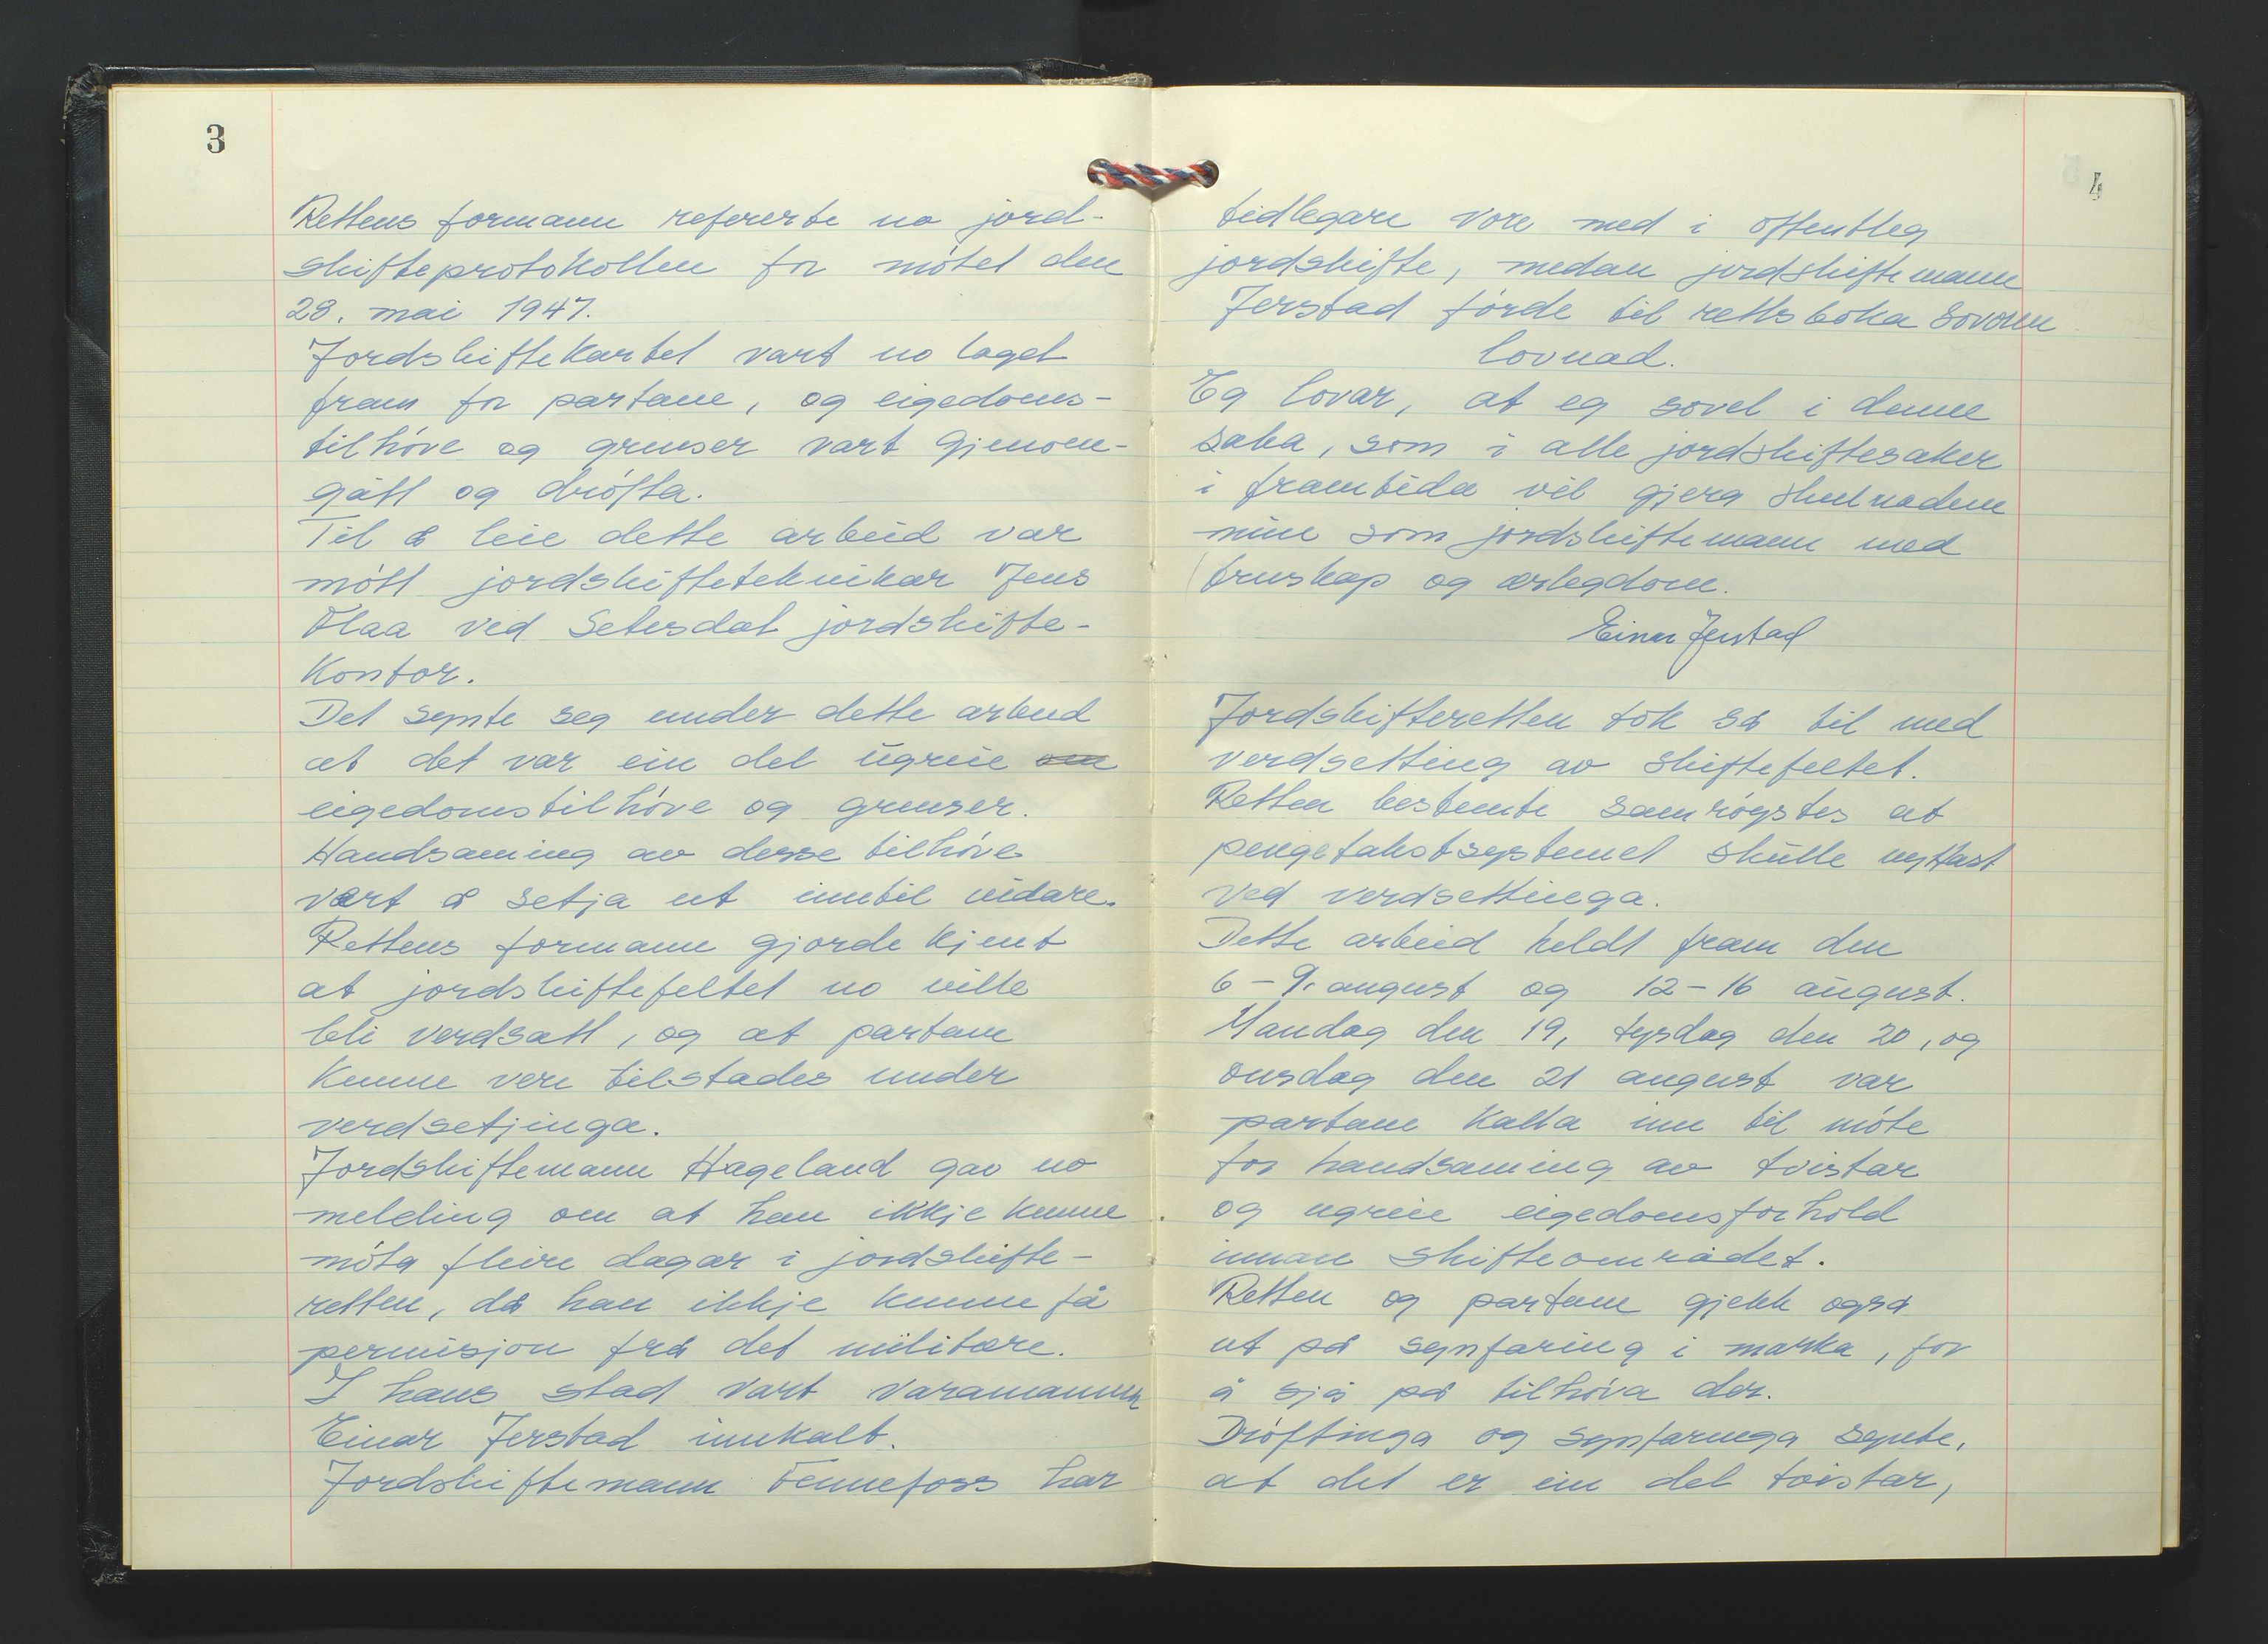 3
Rettens formann refererte no jord-
skifteprotokollen for møtet den
28. mai 1947.
Jordskiftekartet vart no laget
fram for partane, og eigedoms-
tilhøve og grenser vart gjenom-
gått og drøfta.
Til å leie dette arbeid var
møtt jordskifteteknikar Jens
Flaa ved Setesdal jordskifte-
kontor.
Det synte seg under dette arbeid
at det var ein del ugreie om
eigedomstilhøve og grenser.
Handsaming av desse tilhøve
vart å setja ut inntil vidare.
Rettens formann gjorde kjent
at jordskiftefeltet no ville
bli verdsatt, og at partane
kunne vere tilstades under
verdsetjinga.
Jordskiftemann Hageland gav no
melding om at han ikkje kunne
møta fleire dagar i jordskifte-
retten, då han ikkje kunne få
permisjon frå det militære.
I hans stad vart varamannen
Einar Jerstad innkalt.
Jordskiftemann Fennefoss har
4
tidlegare vore med i offentleg
jordskifte, medan jordskiftemann
Jerstad førde til rettsboka sovoren
lovnad.
Eg lovar, at eg sovel i denne
saka, som i alle jordskiftesaker
i framtida vil gjera skulnadene
mine som jordskiftemann med
truskap og ærlegdom.
Einar Jerstad
Jordskifteretten tok så til med
verdsetting av skiftefeltet.
Retten bestemte samrøystes at
pengetakstsystemet skulle nyttast
ved verdsettinga.
Dette arbeid heldt fram den
6-9. august og 12-16 august.
Mandag den 19, tysdag den 20, og
onsdag den 21 august var
partane kalla inn til møte
for handsaming av tvistar
og ugreie eigedomsforhold
innan skifteområdet.
Retten og partane gjekk også
ut på synfaring i marka, for
å sjå på tilhøva der.
Drøftinga og synfaringa synte,
at det er ein del tvistar,